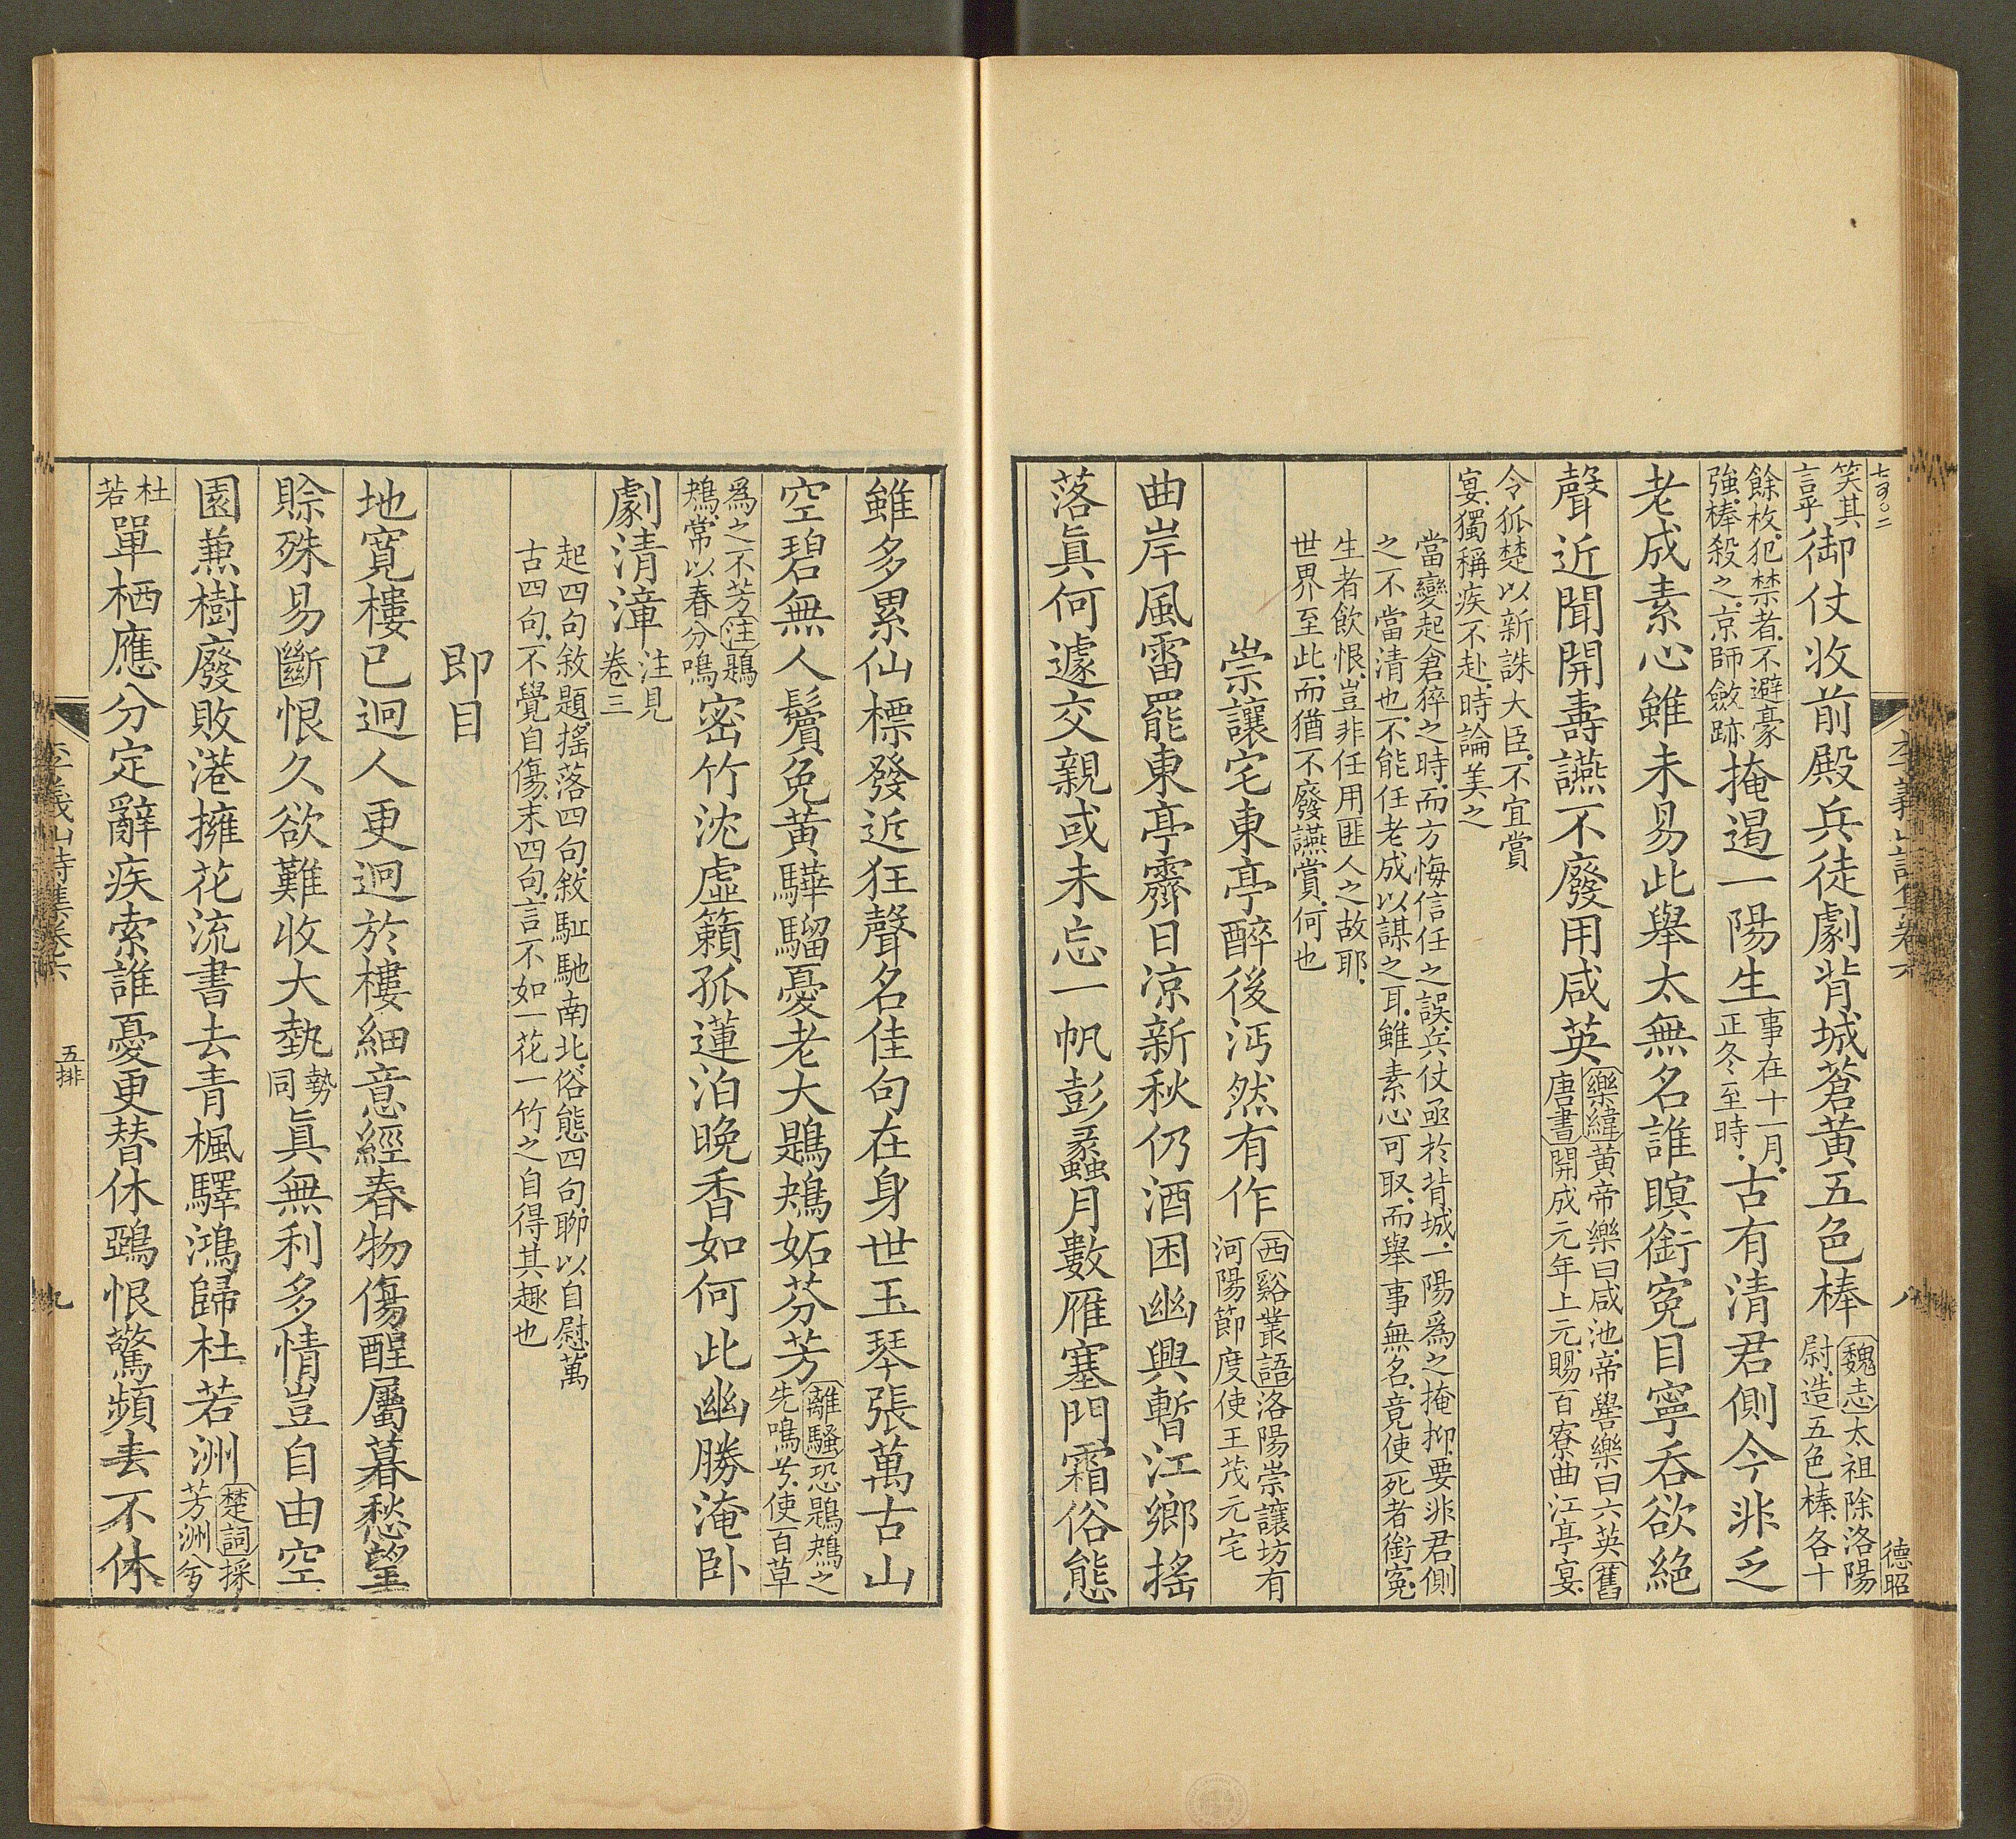 笑其
言乎御仗收前殿兵徒劇背城蒼黄五色棒魏志太祖除洛陽
尉造五色棒各十
餘枚犯禁者不避豪
強棒殺之京師斂跡掩遏一陽生事在十一月
正冬至時古有清君側今非乏
老成素心雖未易此舉太無名誰瞑銜冤目寧吞欲絶
聲近聞開壽讌不廢用咸英樂緯黄帝樂曰咸池帝嚳樂曰六英舊
唐書開成元年上元賜百寮曲江亭宴
令狐楚以新誅大臣不宜賞
宴獨稱疾不赴時論美之
當變起倉猝之時而方悔信任之誤兵仗亟於背城一陽爲之掩抑要非君側
之不當清也不能任老成以謀之耳雖素心可取而舉事無名竟使死者銜冤
生者飲恨豈非任用匪人之故耶
世界至此而猶不廢讌賞何也
崇讓宅東亭醉後沔然有作西谿叢語洛陽崇讓坊有
河陽節度使王茂元宅
曲岸風雷罷東亭霽日凉新秋仍酒困幽興暫江鄉摇
落眞何遽交親或未忘一帆彭蠡月數雁塞門霜俗態
李義山詩集卷六
八
德昭
雖多累仙標發近狂聲名佳句在身世玉琴張萬古山
空碧無人鬢免黄驊騮憂老大鶗鴂妬芬芳離騷恐鶗鴂之
先鳴兮使百草
爲之不芳注鶗
鴂常以春分鳴密竹沈虚籟孤蓮泊晚香如何此幽勝淹卧
劇清漳注見
卷三
起四句敘題摇落四句敘駈馳南北俗態四句聊以自慰萬
古四句不覺自傷末四句言不如一花一竹之自得其趣也
即目
地寬樓已迥人更迥於樓細意經春物傷酲屬暮愁望
賒殊易斷恨久欲難收大埶勢
同眞無利多情豈自由空
園兼樹廢敗港擁花流書去青楓驛鴻歸杜若洲楚詞採
芳洲兮
杜
若單栖應分定辭疾索誰憂更替休鵶恨驚頻去不休
李義山詩集卷六
五排
九